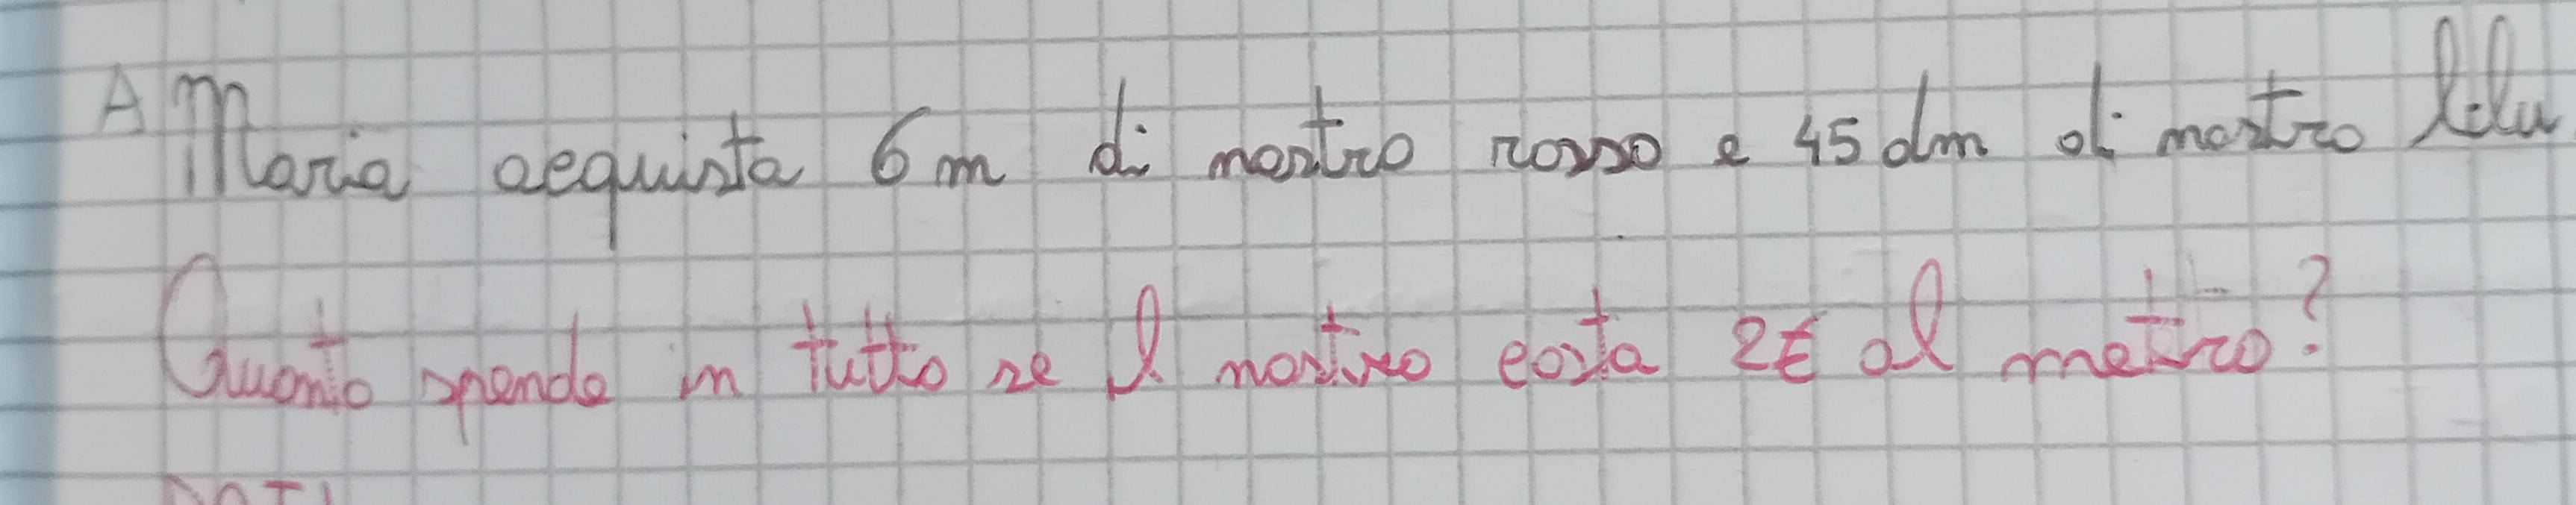 A Maria acquista 6 m di nastro rosso e 45 dm di nastro blu
Quanto spende in tutto se il nastro costa 2€ al metro?
DATI